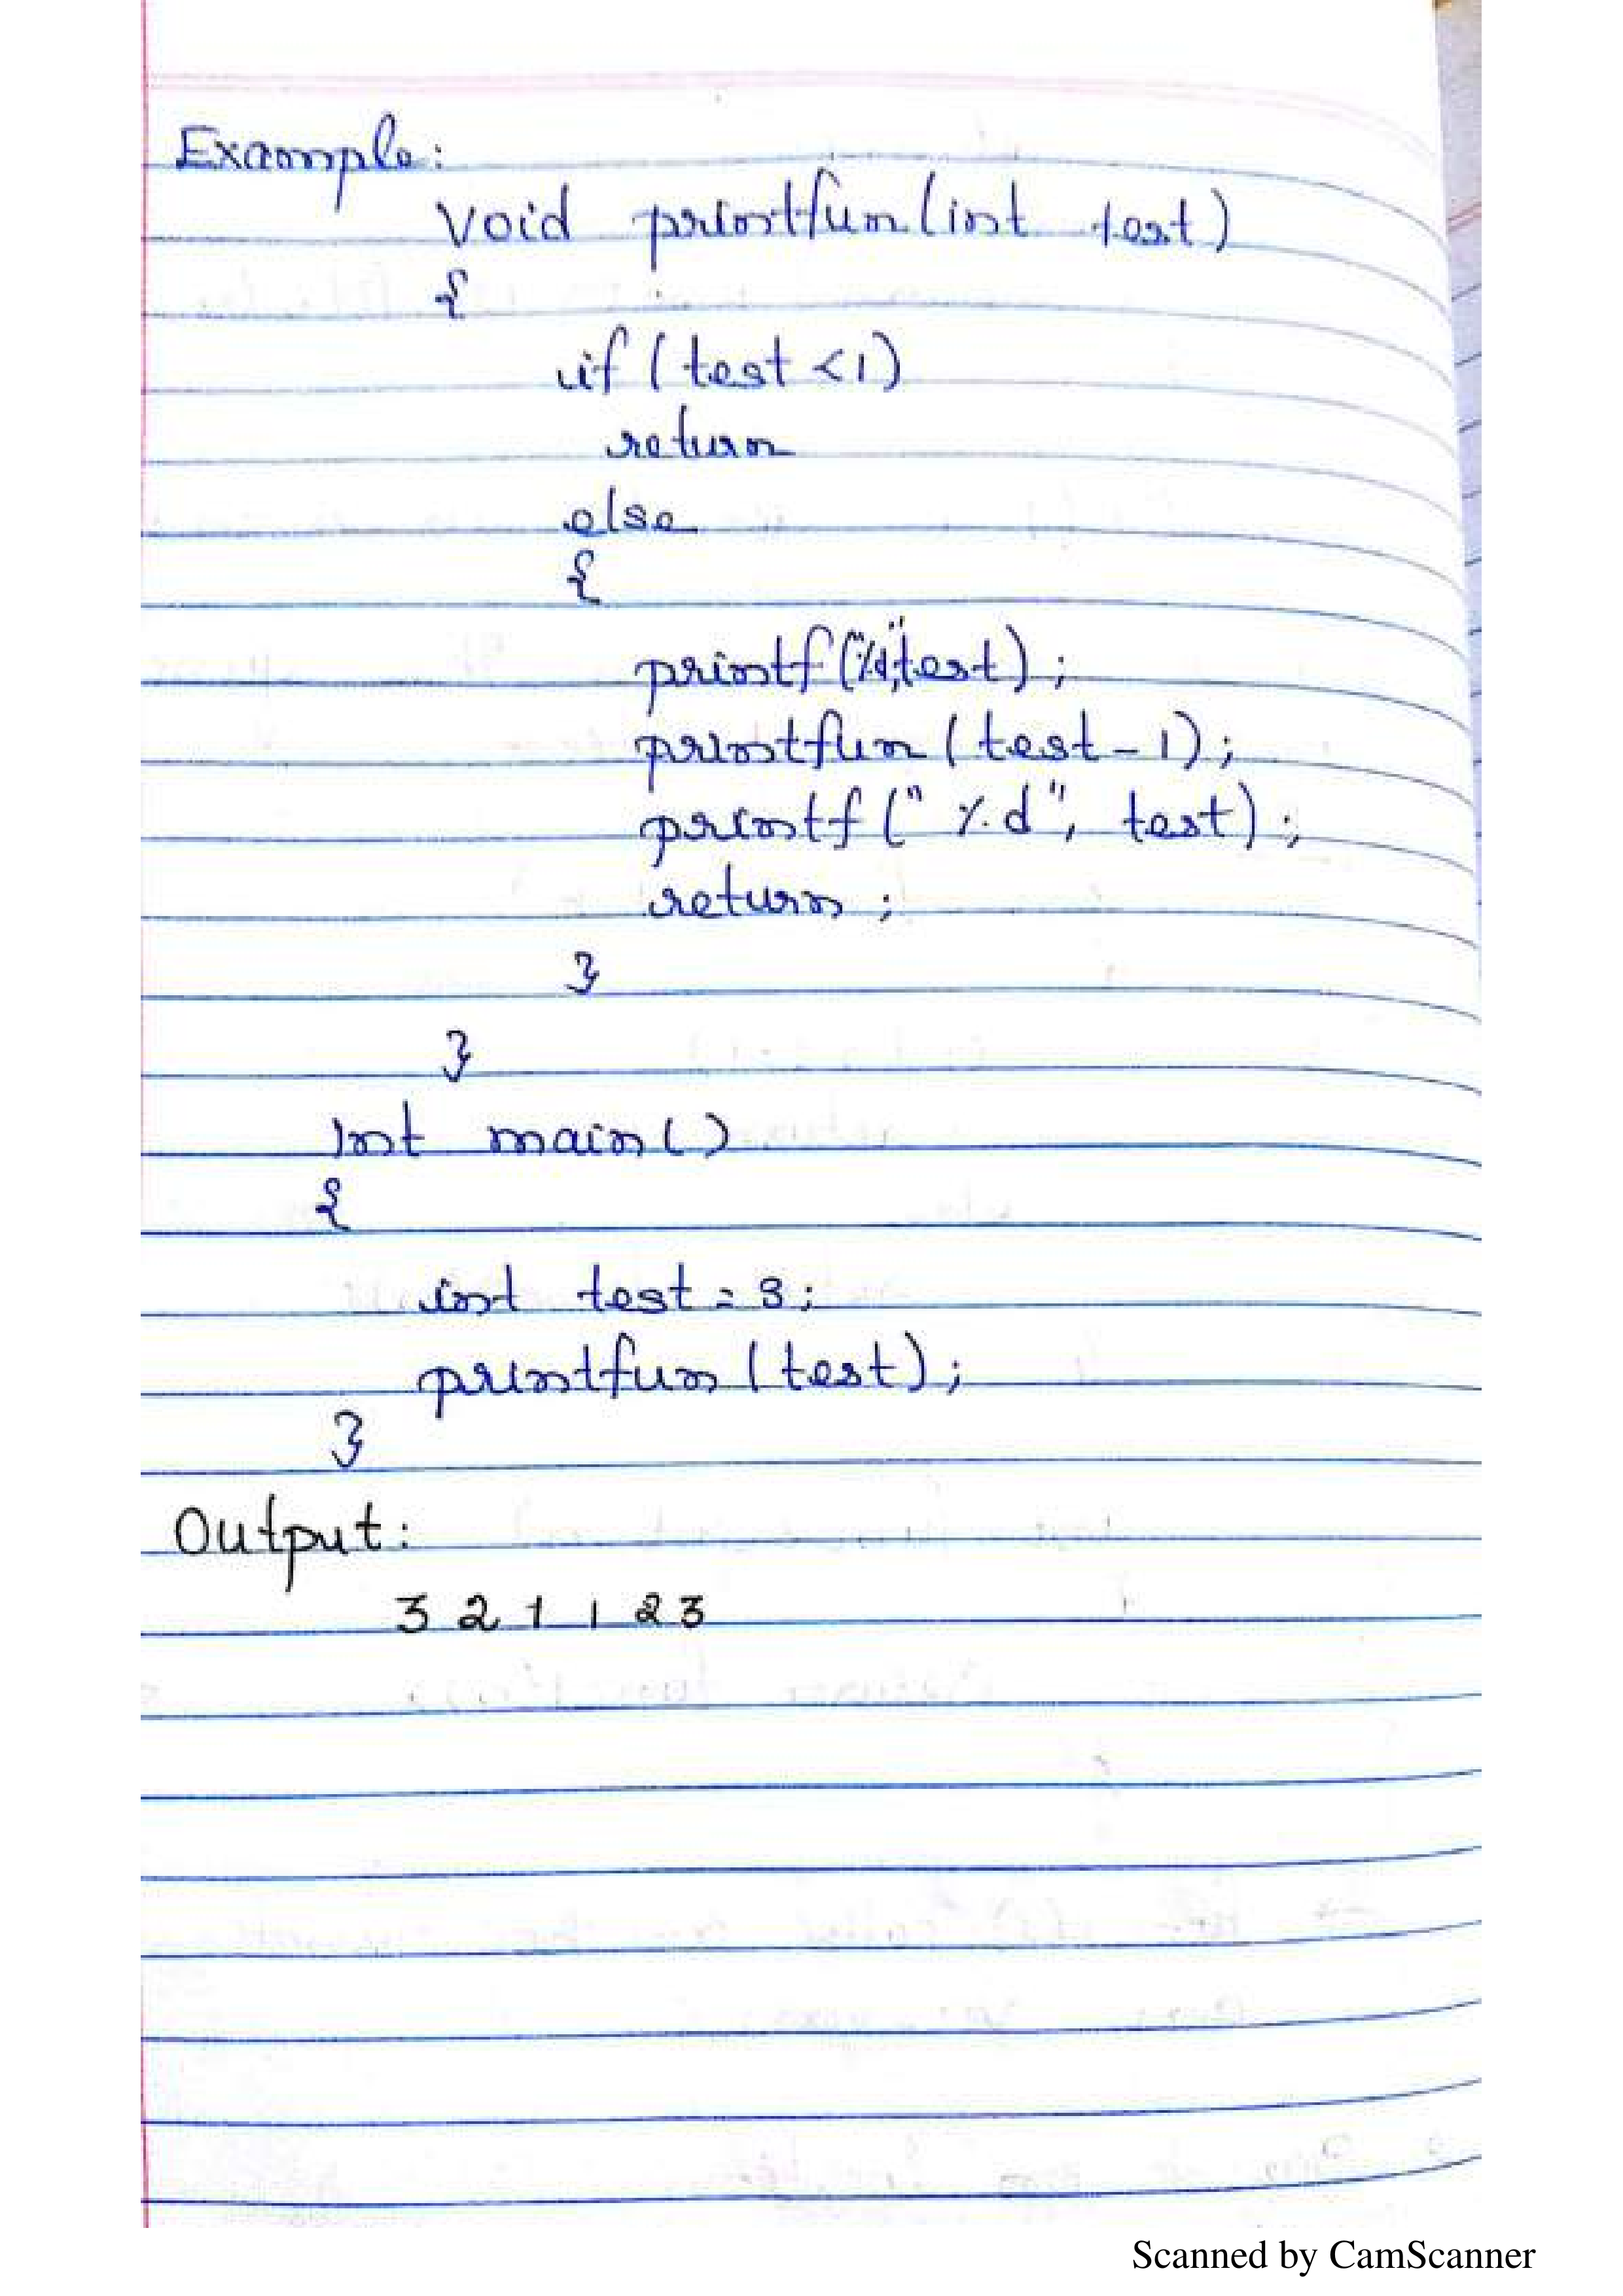 Example:
void printfun(int test)
{
if (test <1)
return
else
{
printf("%d",test);
printfun (test-1);
printf (" %d", test);
return ;
}
}
Int main()
{
int test = 3;
printfun (test);
}
Output:
3 2 1 1 2 3
Scanned by CamScanner